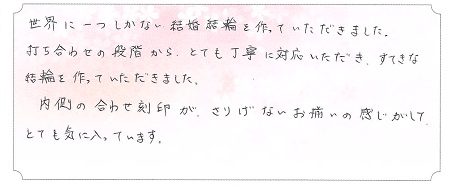 世界に一つしかない結婚指輪を作っていただきました。
打ち合わせの段階から、とても丁寧に対応いただき、すてきな
結輪を作っていただきました。
内側の合わせ刻印が、さりげないお揃いの感じがして、
とても気に入っています。